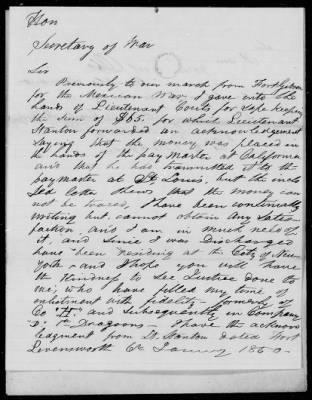 Hon
Secretary of War
Sir
Previously to our march from Fort Gibson
for the Mexican War, I gave into the
hands of Lieutenant Couts for safe keeping
the sum of $65. for which Lieutenant
Stanton forwarded an acknowledgement
saying that the money was placed in
the hands of the pay Master at California
and that he has transmitted it to the
paymaster at St Louis, but the
letter shews that the money can
not be traced, I have been continually
writing but cannot obtain any Satis-
faction, and I am in much need of
it, and Since I was Discharged
have been residing at the City of New
York and I hope you will have
the kindness to see Justice done to
me, who have filled my time of
enlistment with fidelity - formerly of
Co "H" and Subsequently in Company
"D" 1st Dragoons - I have the acknow
ledgment from Lt. Stanton dated Fort
Levensworth 6th January 1850-